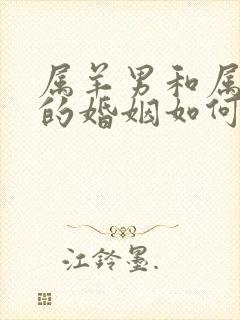 属羊男和属
的婚姻如何
江铃墨.